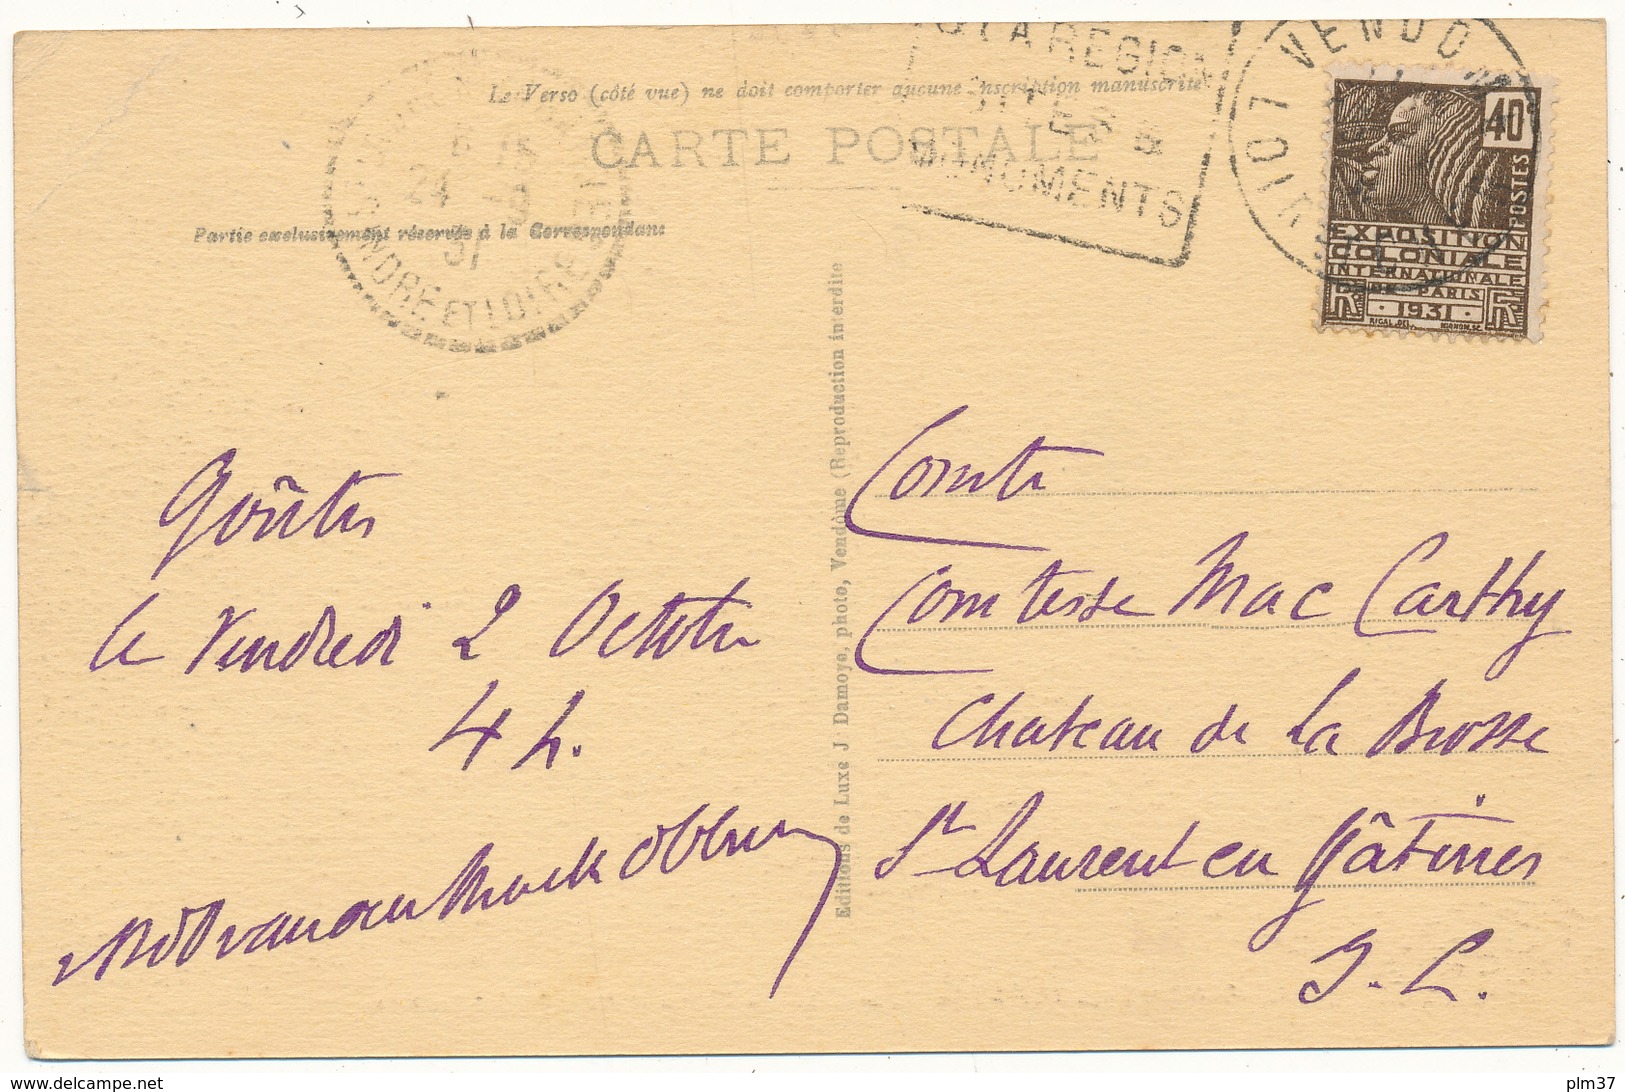 Le Verso (côté vue) ne doit comporter aucune inscription manuscrite
CARTE POSTALE
Partie exclusivement réservée à la Correspondance
ET LA REGION
MONUMENTS
VENDOME
LOIR ET CHER
24
31
INDRE ET LOIRE
40c
POSTES
EXPOSITION
COLONIALE
INTERNATIONALE
PARIS
1931
RF RF
RIGAL.DEL. MIGNON.SC.
Goûter
le Vendredi 2 Octobre
4 h.
Editions de Luxe J Damoye, photo, Vendôme (Reproduction interdite
Comte
Comtesse Mac Carthy
Chateau de La Brosse
St Laurent en Gâtines
I. L.
plm37